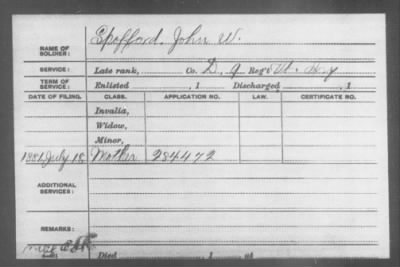 NAME OF SOLDIER: Spofford, John W.
SERVICE: Late rank, Co. D, 9 Reg't Vt. Inf
TERM OF SERVICE: Enlisted , 1 Discharged , 1
DATE OF FILING. CLASS. APPLICATION NO. LAW. CERTIFICATE NO.
Invalid,
Widow,
Minor,
1881 July 18 Mother 284472
ADDITIONAL SERVICES:
REMARKS:
Died , 1 at